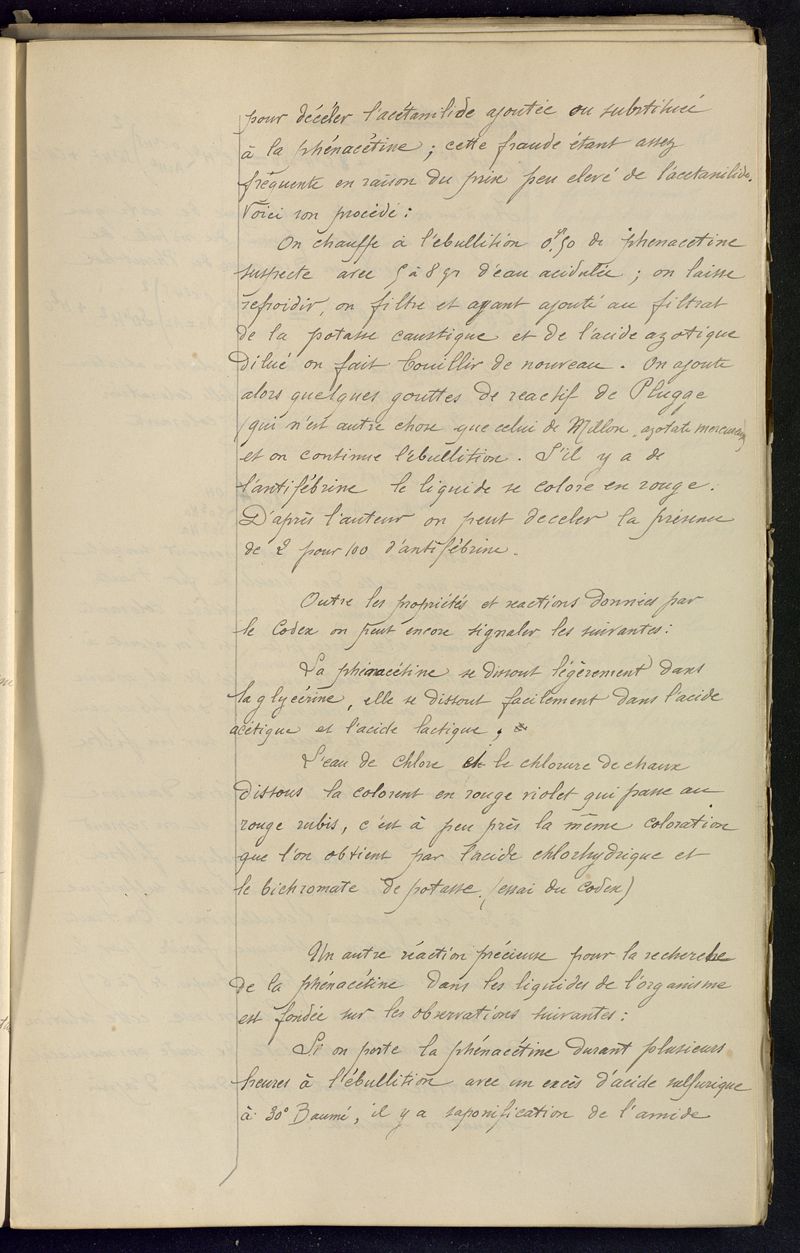 pour décéler l'acétanilide ajoutée ou substituée
à la phénacétine ; cette fraude étant assez
fréquente en raison du prix peu elevé de l'acetanilide.
Voici son procédé :
On chauffe à l'ébullition 0gr,50 de phenacetine
suspecte avec 5 à 8 gr d'eau acidulée ; on laisse
refroidir, on filtre et ayant ajouté au filtrat
de la potasse caustique et de l'acide azotique
dilué on fait bouillir de nouveau . On ajoute
alors quelques gouttes de reactif de Plugge
(qui n'est autre chose que celui de Millon, azotate mercureux)
et on continue l'ébullition . S'il y a de
l'antifébrine le liquide se colore en rouge .
D'après l'auteur on peut deceler la présence
de 2 pour 100 d'antifébrine .
Outre les propriétés et reactions données par
le Codex on peut encore signaler les suivantes :
La phénacétine se dissout légèrement dans
la glycérine, elle se dissout facilement dans l'acide
acétique et l'acide lactique .
L'eau de chlore et le chlorure de chaux
dissous la colorent en rouge violet qui passe au
rouge rubis, c'est à peu près la même coloration
que l'on obtient par l'acide chlorhydrique et
le bichromate de potasse. (essai du codex)
Un autre réaction précieuse pour la recherche
de la phénacétine dans les liquides de l'organisme
est fondée sur les observations suivantes :
Si on porte la phénacétine durant plusieurs
heures à l'ébullition avec un excès d'acide sulfurique
à 30° Baumé, il y a saponification de l'amide